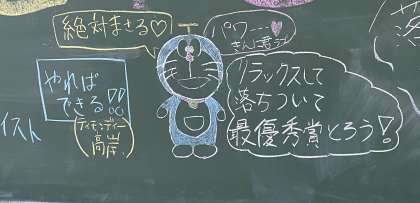 絶対まさる♡
パワー♡
やれば
できる!!
ティモンディー
高岸
リラックスして
落ちついて
最優秀賞とろう!
イスト